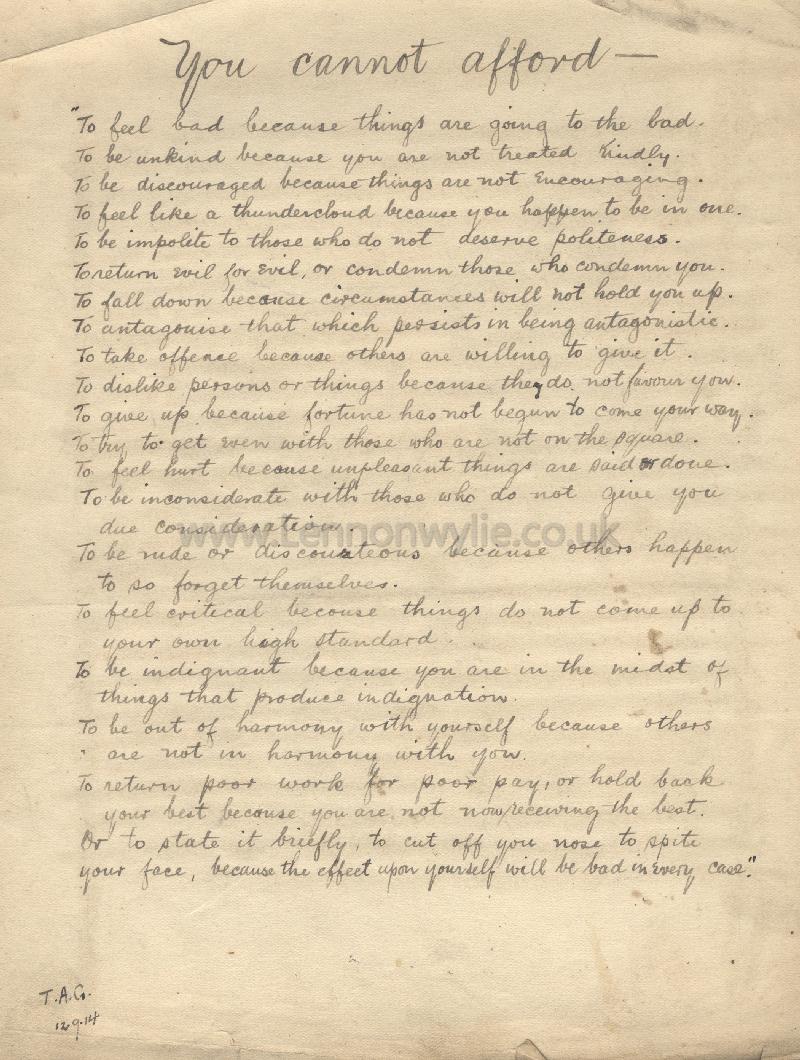 You cannot afford —
"To feel bad because things are going to the bad.
To be unkind because you are not treated kindly.
To be discouraged because things are not Encouraging.
To feel like a thundercloud because you happen to be in one.
To be impolite to those who do not deserve politeness.
To return Evil for Evil, or condemn those who condemn you.
To fall down because circumstances will not hold you up.
To antagonise that which persists in being antagonistic.
To take offence because others are willing to give it.
To dislike persons or things because they do not favour you.
To give up because fortune has not begun to come your way.
To try to get Even with those who are not on the square.
To feel hurt because unpleasant things are said or done.
To be inconsiderate with those who do not give you
due consideration.
www.Lennonwylie.co.uk
To be rude or discourteous because others happen
to so forget themselves.
To feel critical because things do not come up to
your own high standard.
To be indignant because you are in the midst of
things that produce indignation.
To be out of harmony with yourself because others
are not in harmony with you.
To return poor work for poor pay, or hold back
your best because you are not now receiving the best.
Or to state it briefly, to cut off you nose to spite
your face, because the effect upon yourself will be bad in Every case."
T.A.G.
12.9.14